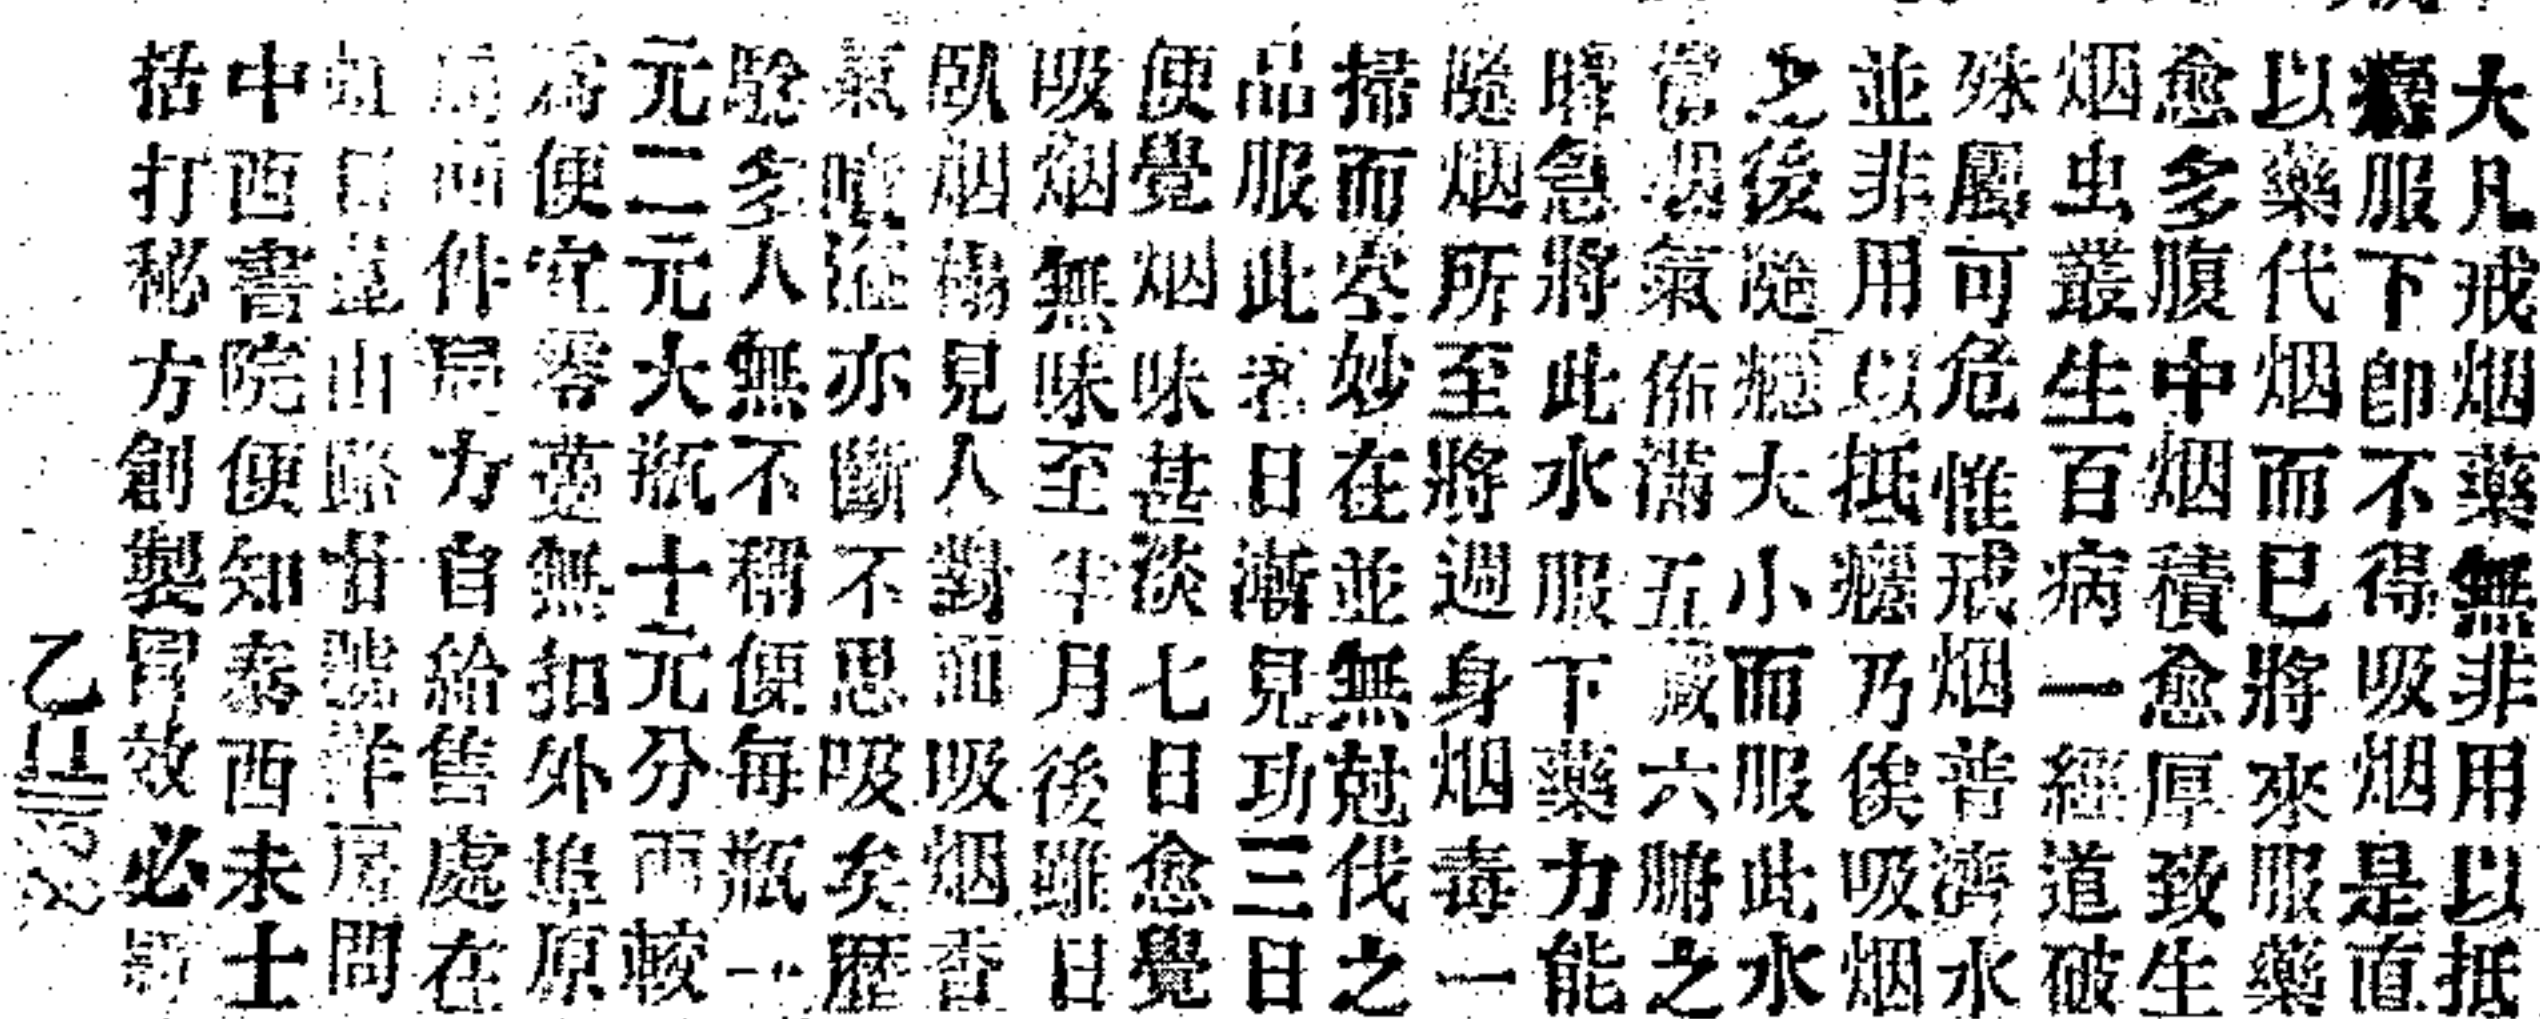 大凡戒烟藥無非用以抵
癮服下即不得吸烟是直
以藥代烟而已將來服藥
愈多腹中烟積愈厚致生
烟虫叢生百病一經道破
殊屬可危惟戒烟普濟水
並非用以抵癮乃俟吸烟
之後隨癮大小而服此水
當烟氣佈滿五臟六腑之
時急將此水服下藥力能
隨烟所至將週身烟毒一
掃而空妙在並無尅伐之
品服此者日漸見功三日
便覺烟味甚淡七日愈覺
吸烟無味至半月後雖日
臥烟榻見人對面吸烟香
氣噴溢亦斷不思吸矣歷
驗多人無不稱便每瓶一
元二元大瓶十元分兩較
為便宜零躉無扣外埠原
局兩件局力自給售處在
虹口崑山路 號洋房問
中西書院便知泰西未士
括打秘方創製冒效必